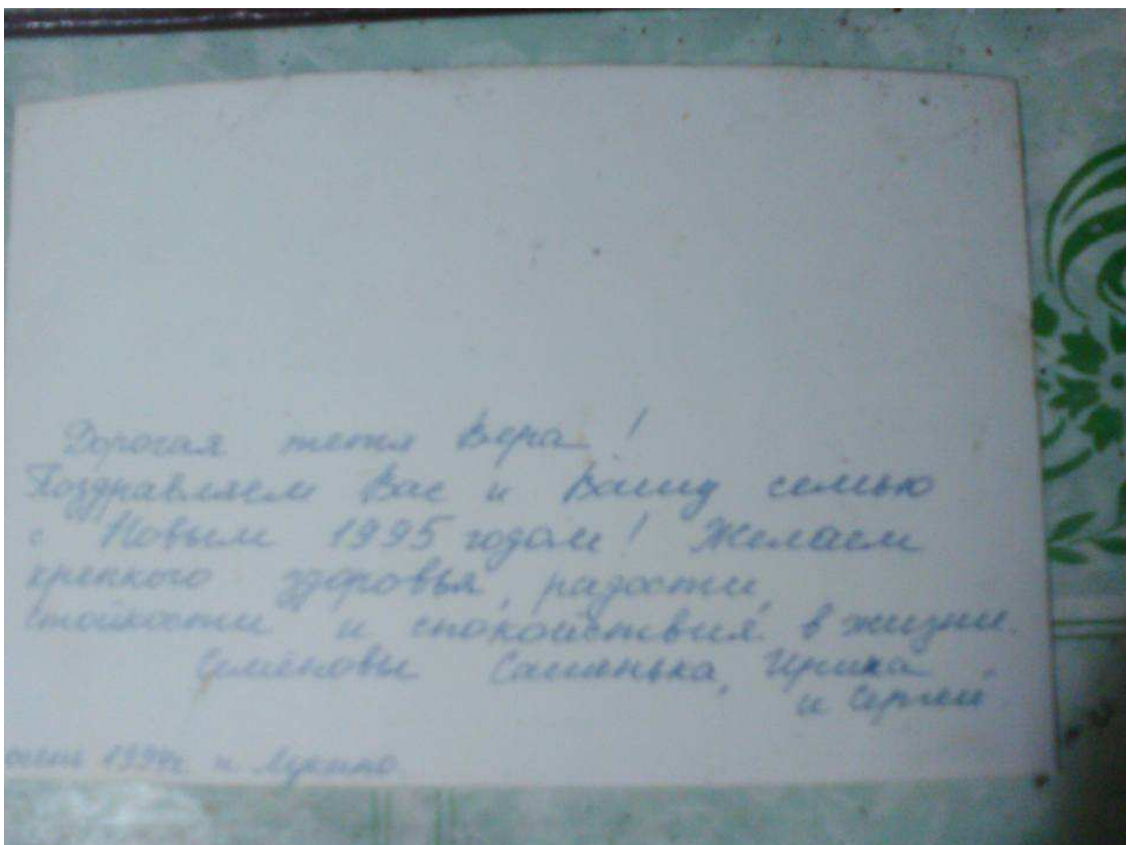 Дорогая тетя Вера!
Поздравляем Вас и Вашу семью
с Новым 1995 годом! Желаем
крепкого здоровья, радости,
стойкости и спокойствия в жизни.
Семёновы Сашенька, Ирина
и Сергей
1994г. п. Лукино